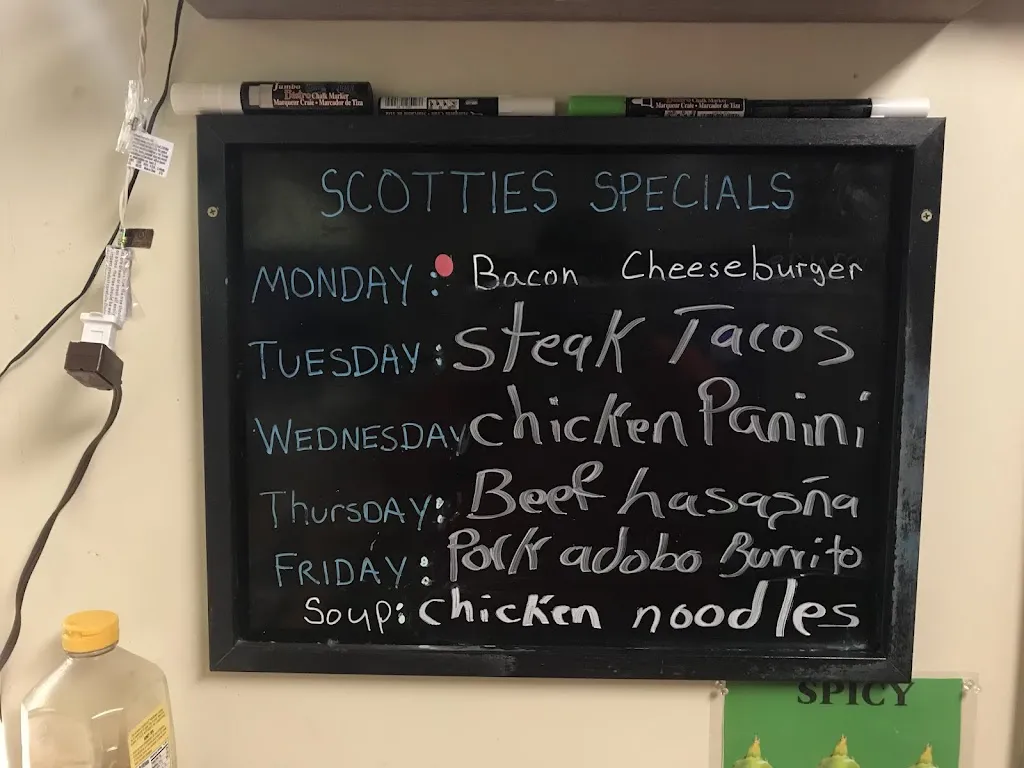 Jumbo
Bistro Chalk Marker
Marqueur Craie • Marcador de Tiza
Marqueur Craie • Marcador de Tiza
SCOTTIES SPECIALS
MONDAY: Bacon Cheeseburger
TUESDAY: Steak Tacos
WEDNESDAY chicken Panini
Thursday: Beef hasagña
FRIDAY: Pork adobo Burrito
Soup: chicken noodles
SPICY